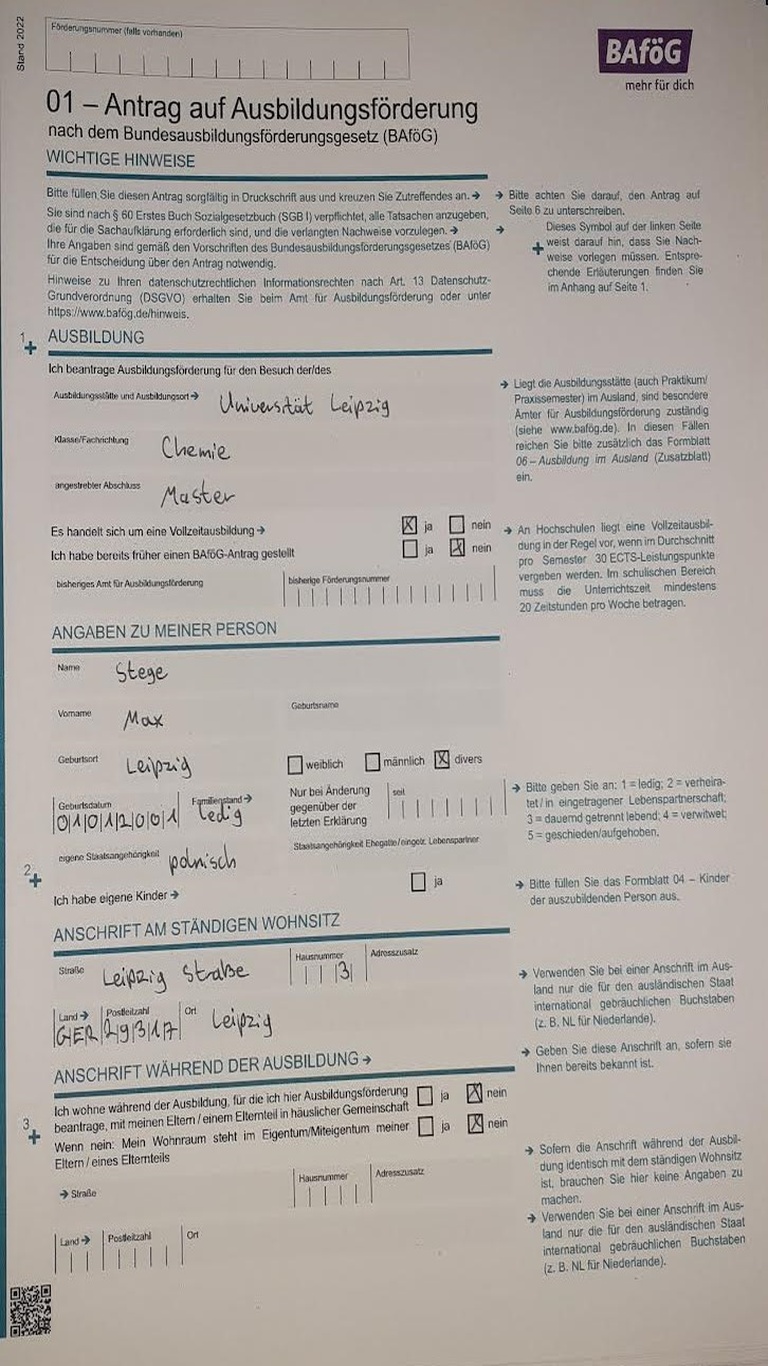 Stand 2022
Förderungsnummer (falls vorhanden)
BAföG
mehr für dich
01 – Antrag auf Ausbildungsförderung
nach dem Bundesausbildungsförderungsgesetz (BAföG)
WICHTIGE HINWEISE
Bitte füllen Sie diesen Antrag sorgfältig in Druckschrift aus und kreuzen Sie Zutreffendes an. →
Sie sind nach § 60 Erstes Buch Sozialgesetzbuch (SGB I) verpflichtet, alle Tatsachen anzugeben,
die für die Sachaufklärung erforderlich sind, und die verlangten Nachweise vorzulegen. →
Ihre Angaben sind gemäß den Vorschriften des Bundesausbildungsförderungsgesetzes (BAföG)
für die Entscheidung über den Antrag notwendig.
Hinweise zu Ihren datenschutzrechtlichen Informationsrechten nach Art. 13 Datenschutz-
Grundverordnung (DSGVO) erhalten Sie beim Amt für Ausbildungsförderung oder unter
https://www.bafög.de/hinweis.
→ Bitte achten Sie darauf, den Antrag auf
Seite 6 zu unterschreiben.
→ Dieses Symbol auf der linken Seite
+ weist darauf hin, dass Sie Nach-
weise vorlegen müssen. Entspre-
chende Erläuterungen finden Sie
im Anhang auf Seite 1.
1 +
AUSBILDUNG
Ich beantrage Ausbildungsförderung für den Besuch der/des
Ausbildungsstätte und Ausbildungsort → Universität Leipzig
Klasse/Fachrichtung Chemie
angestrebter Abschluss Master
→ Liegt die Ausbildungsstätte (auch Praktikum/
Praxissemester) im Ausland, sind besondere
Ämter für Ausbildungsförderung zuständig
(siehe www.bafög.de). In diesen Fällen
reichen Sie bitte zusätzlich das Formblatt
06 – Ausbildung im Ausland (Zusatzblatt)
ein.
Es handelt sich um eine Vollzeitausbildung → X ja nein
Ich habe bereits früher einen BAföG-Antrag gestellt ja X nein
bisheriges Amt für Ausbildungsförderung bisherige Förderungsnummer
→ An Hochschulen liegt eine Vollzeitausbil-
dung in der Regel vor, wenn im Durchschnitt
pro Semester 30 ECTS-Leistungspunkte
vergeben werden. Im schulischen Bereich
muss die Unterrichtszeit mindestens
20 Zeitstunden pro Woche betragen.
ANGABEN ZU MEINER PERSON
Name Stege
Vorname Max Geburtsname
Geburtsort Leipzig weiblich männlich X divers
Geburtsdatum 01012001 Familienstand → ledig
Nur bei Änderung
gegenüber der
letzten Erklärung
seit
eigene Staatsangehörigkeit polnisch Staatsangehörigkeit Ehegatte/eingetr. Lebenspartner
2 +
Ich habe eigene Kinder → ja
→ Bitte geben Sie an: 1 = ledig; 2 = verheira-
tet / in eingetragener Lebenspartnerschaft;
3 = dauernd getrennt lebend; 4 = verwitwet;
5 = geschieden/aufgehoben.
→ Bitte füllen Sie das Formblatt 04 – Kinder
der auszubildenden Person aus.
ANSCHRIFT AM STÄNDIGEN WOHNSITZ
Straße Leipzig Straße Hausnummer 3 Adresszusatz
Land → GER Postleitzahl 29317 Ort Leipzig
→ Verwenden Sie bei einer Anschrift im Aus-
land nur die für den ausländischen Staat
international gebräuchlichen Buchstaben
(z. B. NL für Niederlande).
ANSCHRIFT WÄHREND DER AUSBILDUNG →
→ Geben Sie diese Anschrift an, sofern sie
Ihnen bereits bekannt ist.
Ich wohne während der Ausbildung, für die ich hier Ausbildungsförderung
beantrage, mit meinen Eltern / einem Elternteil in häuslicher Gemeinschaft ja X nein
3 +
Wenn nein: Mein Wohnraum steht im Eigentum/Miteigentum meiner ja X nein
Eltern / eines Elternteils
→ Straße Hausnummer Adresszusatz
Land → Postleitzahl Ort
→ Sofern die Anschrift während der Ausbil-
dung identisch mit dem ständigen Wohnsitz
ist, brauchen Sie hier keine Angaben zu
machen.
→ Verwenden Sie bei einer Anschrift im Aus-
land nur die für den ausländischen Staat
international gebräuchlichen Buchstaben
(z. B. NL für Niederlande).